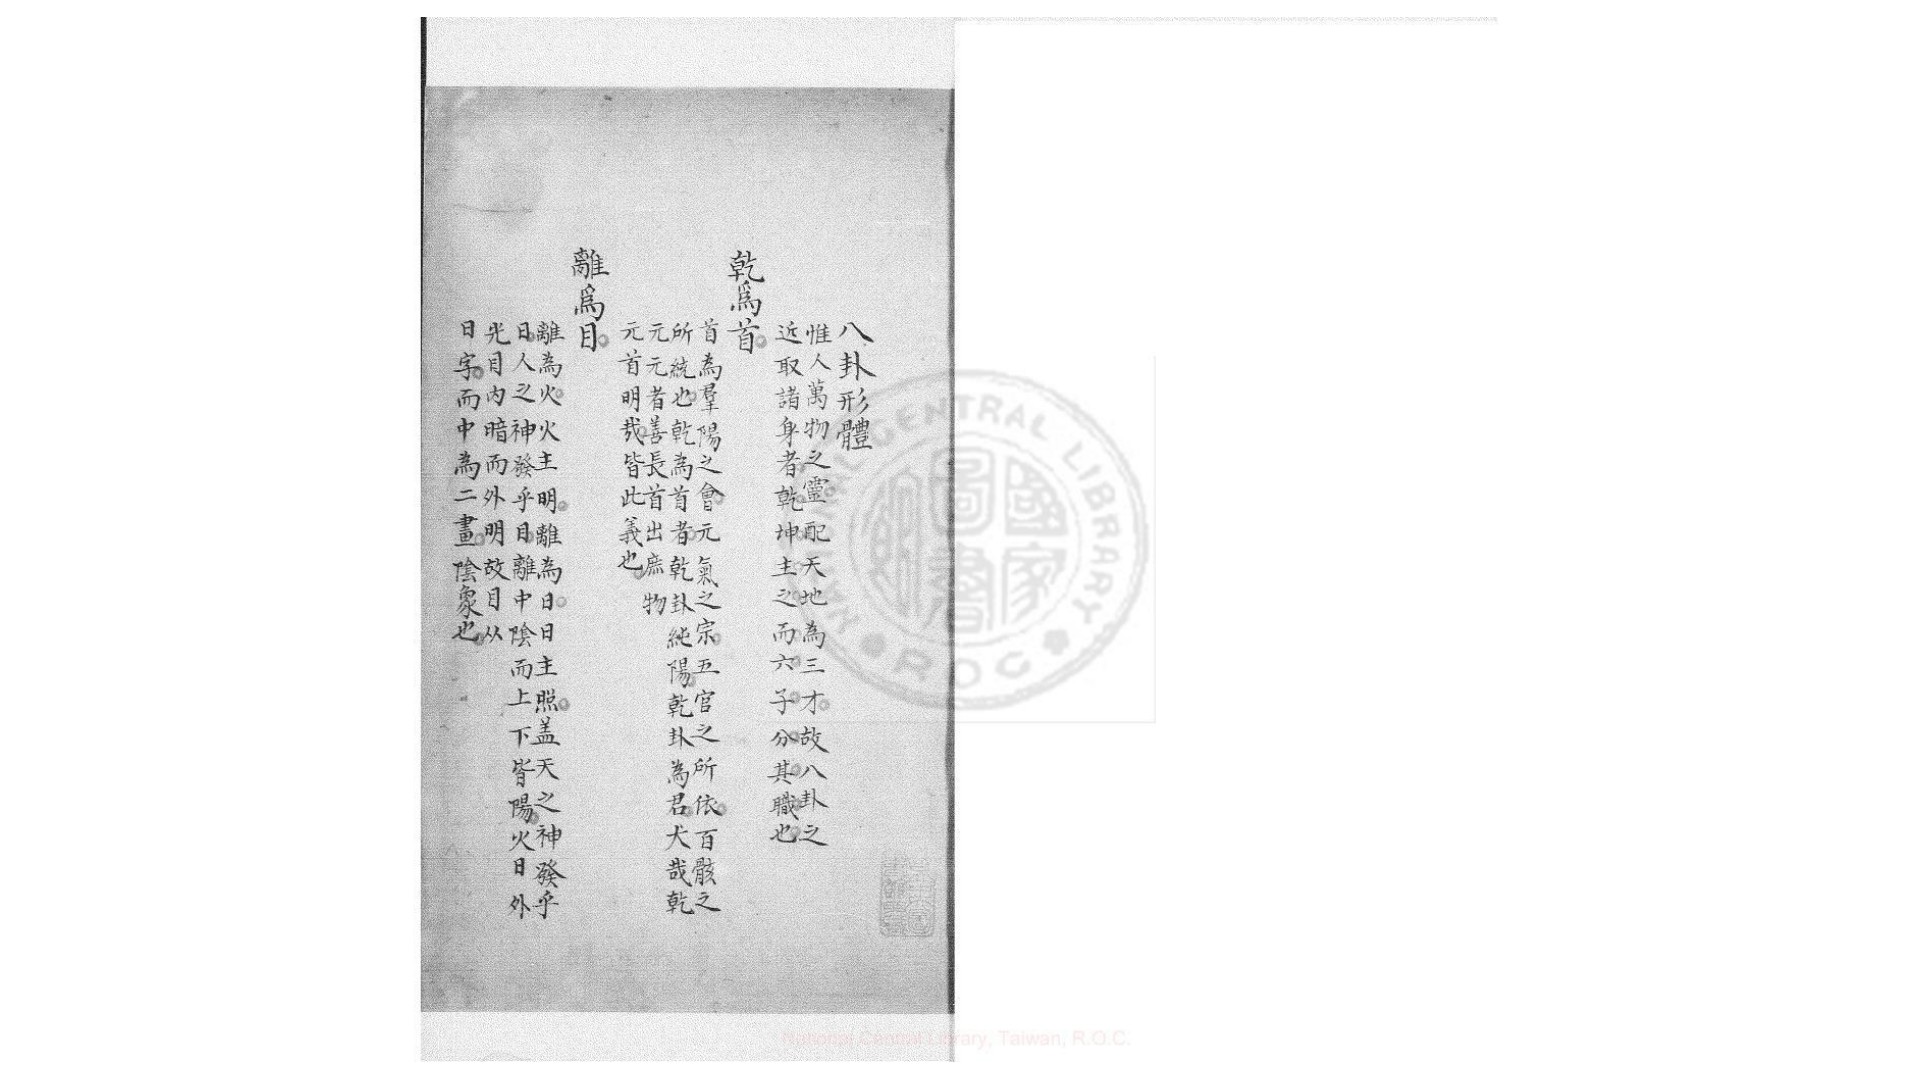 八卦形體
惟人萬物之靈配天地為三才故八卦之
近取諸身者乾坤主之而六子分其職也
乾爲首
首為羣陽之會元氣之宗五官之所依百骸之
所統也乾為首者乾卦純陽乾卦為君大哉乾
元元者善長首出庶物
元首明哉皆此義也
離爲目
離為火火主明離為日日主照盖天之神發乎
日人之神發乎目離中陰而上下皆陽火日外
光目内暗而外明故目从
日字而中為二畫陰象也
NATIONAL CENTRAL LIBRARY
R.O.C
國家圖書館
National Central Library, Taiwan, R.O.C.